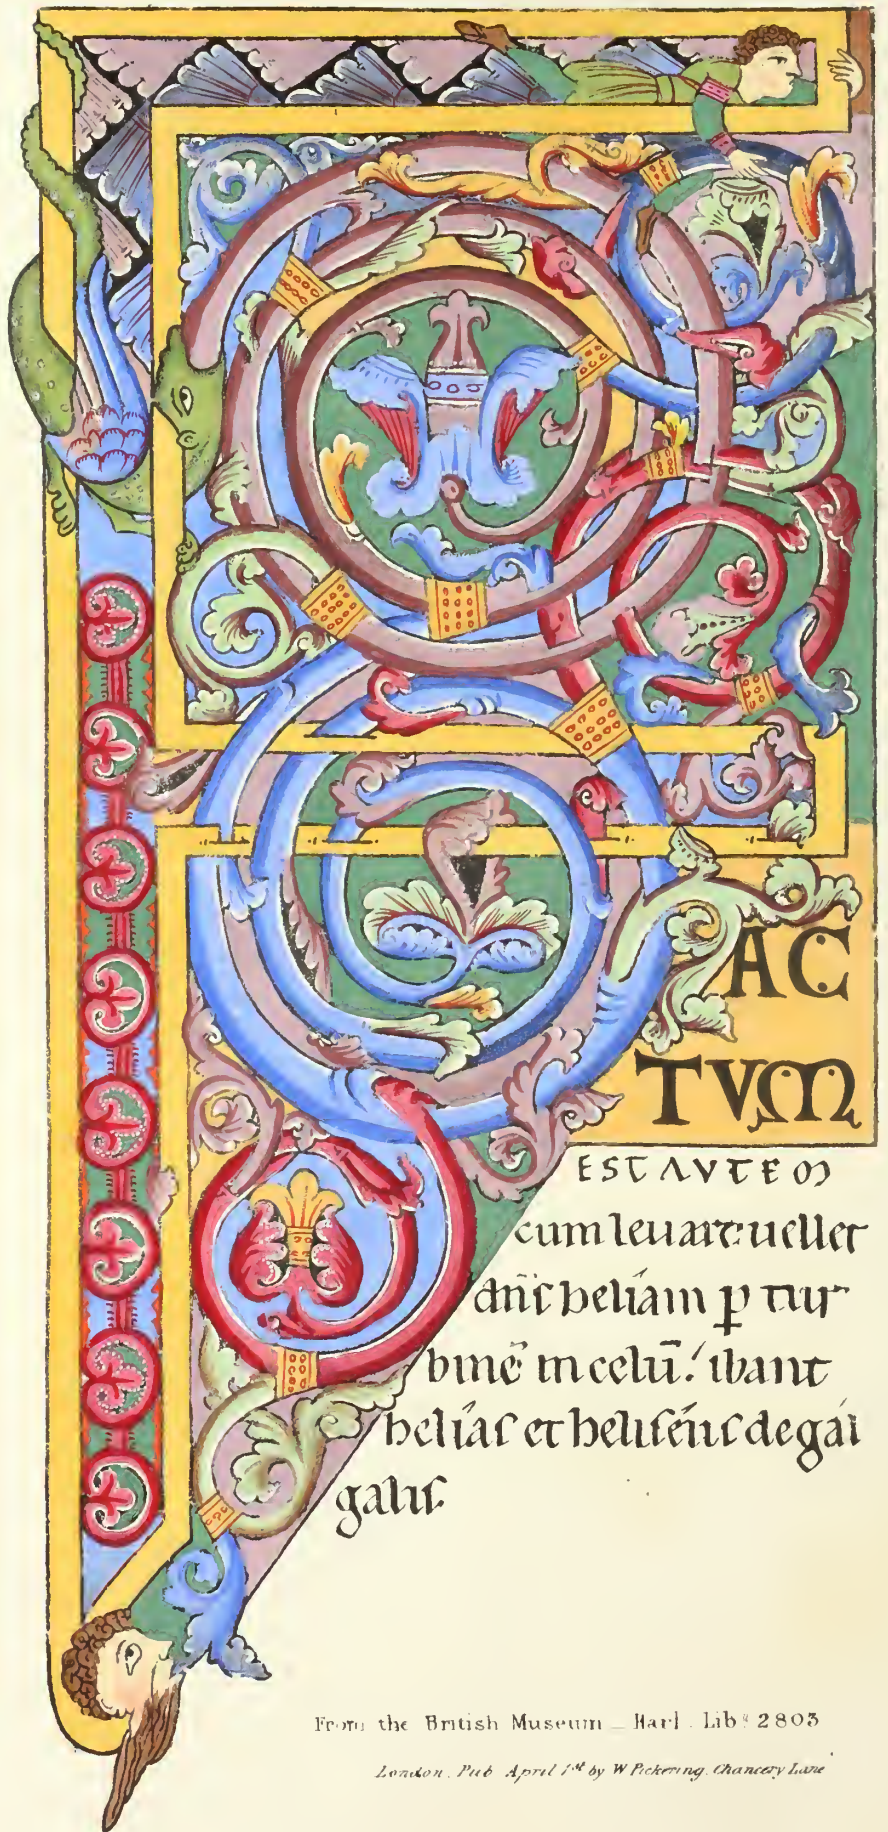 FACTUM
EST AVTEM
cum leuare uellet
dn̄s heliam ꝑ tur
binē in celū. ibant
helias et heliseus de gal
galis.
From the British Museum _ Harl. Lib. 2803
London. Pub April 1st by W Pickering. Chancery Lane